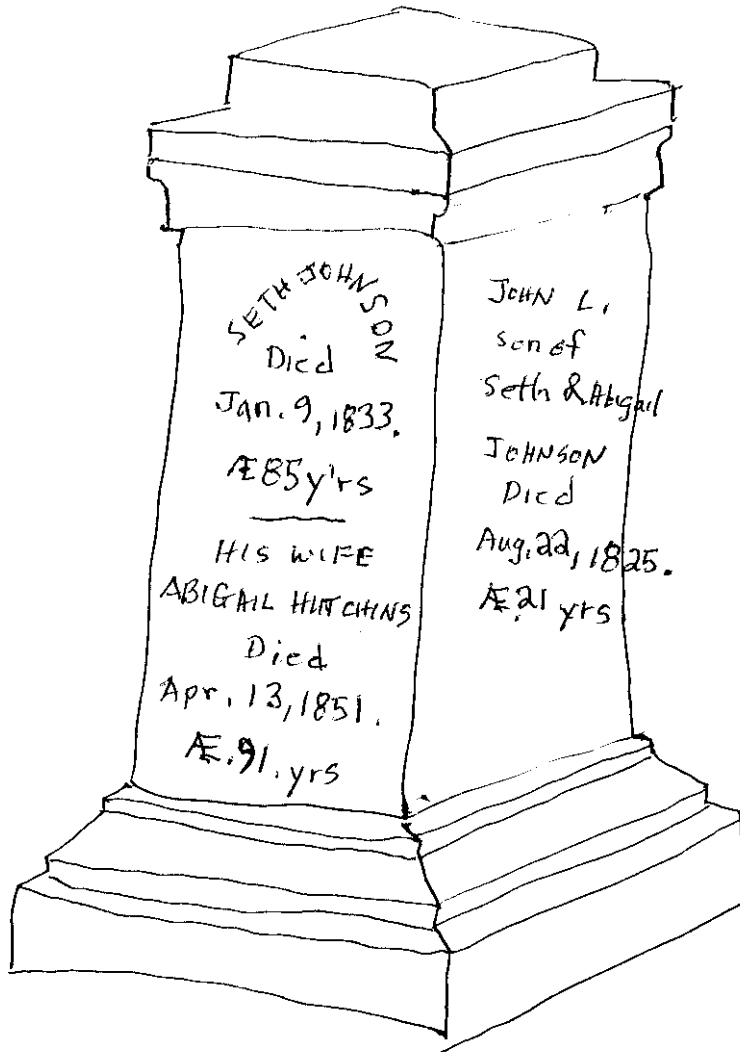 SETH JOHNSON
Died
Jan. 9, 1833.
Æ 85 y'rs
HIS WIFE
ABIGAIL HUTCHINS
Died
Apr. 13, 1851.
Æ. 91. yrs
JOHN L.
son of
Seth & Abigail
JOHNSON
Died
Aug. 22, 1825.
Æ. 21 yrs